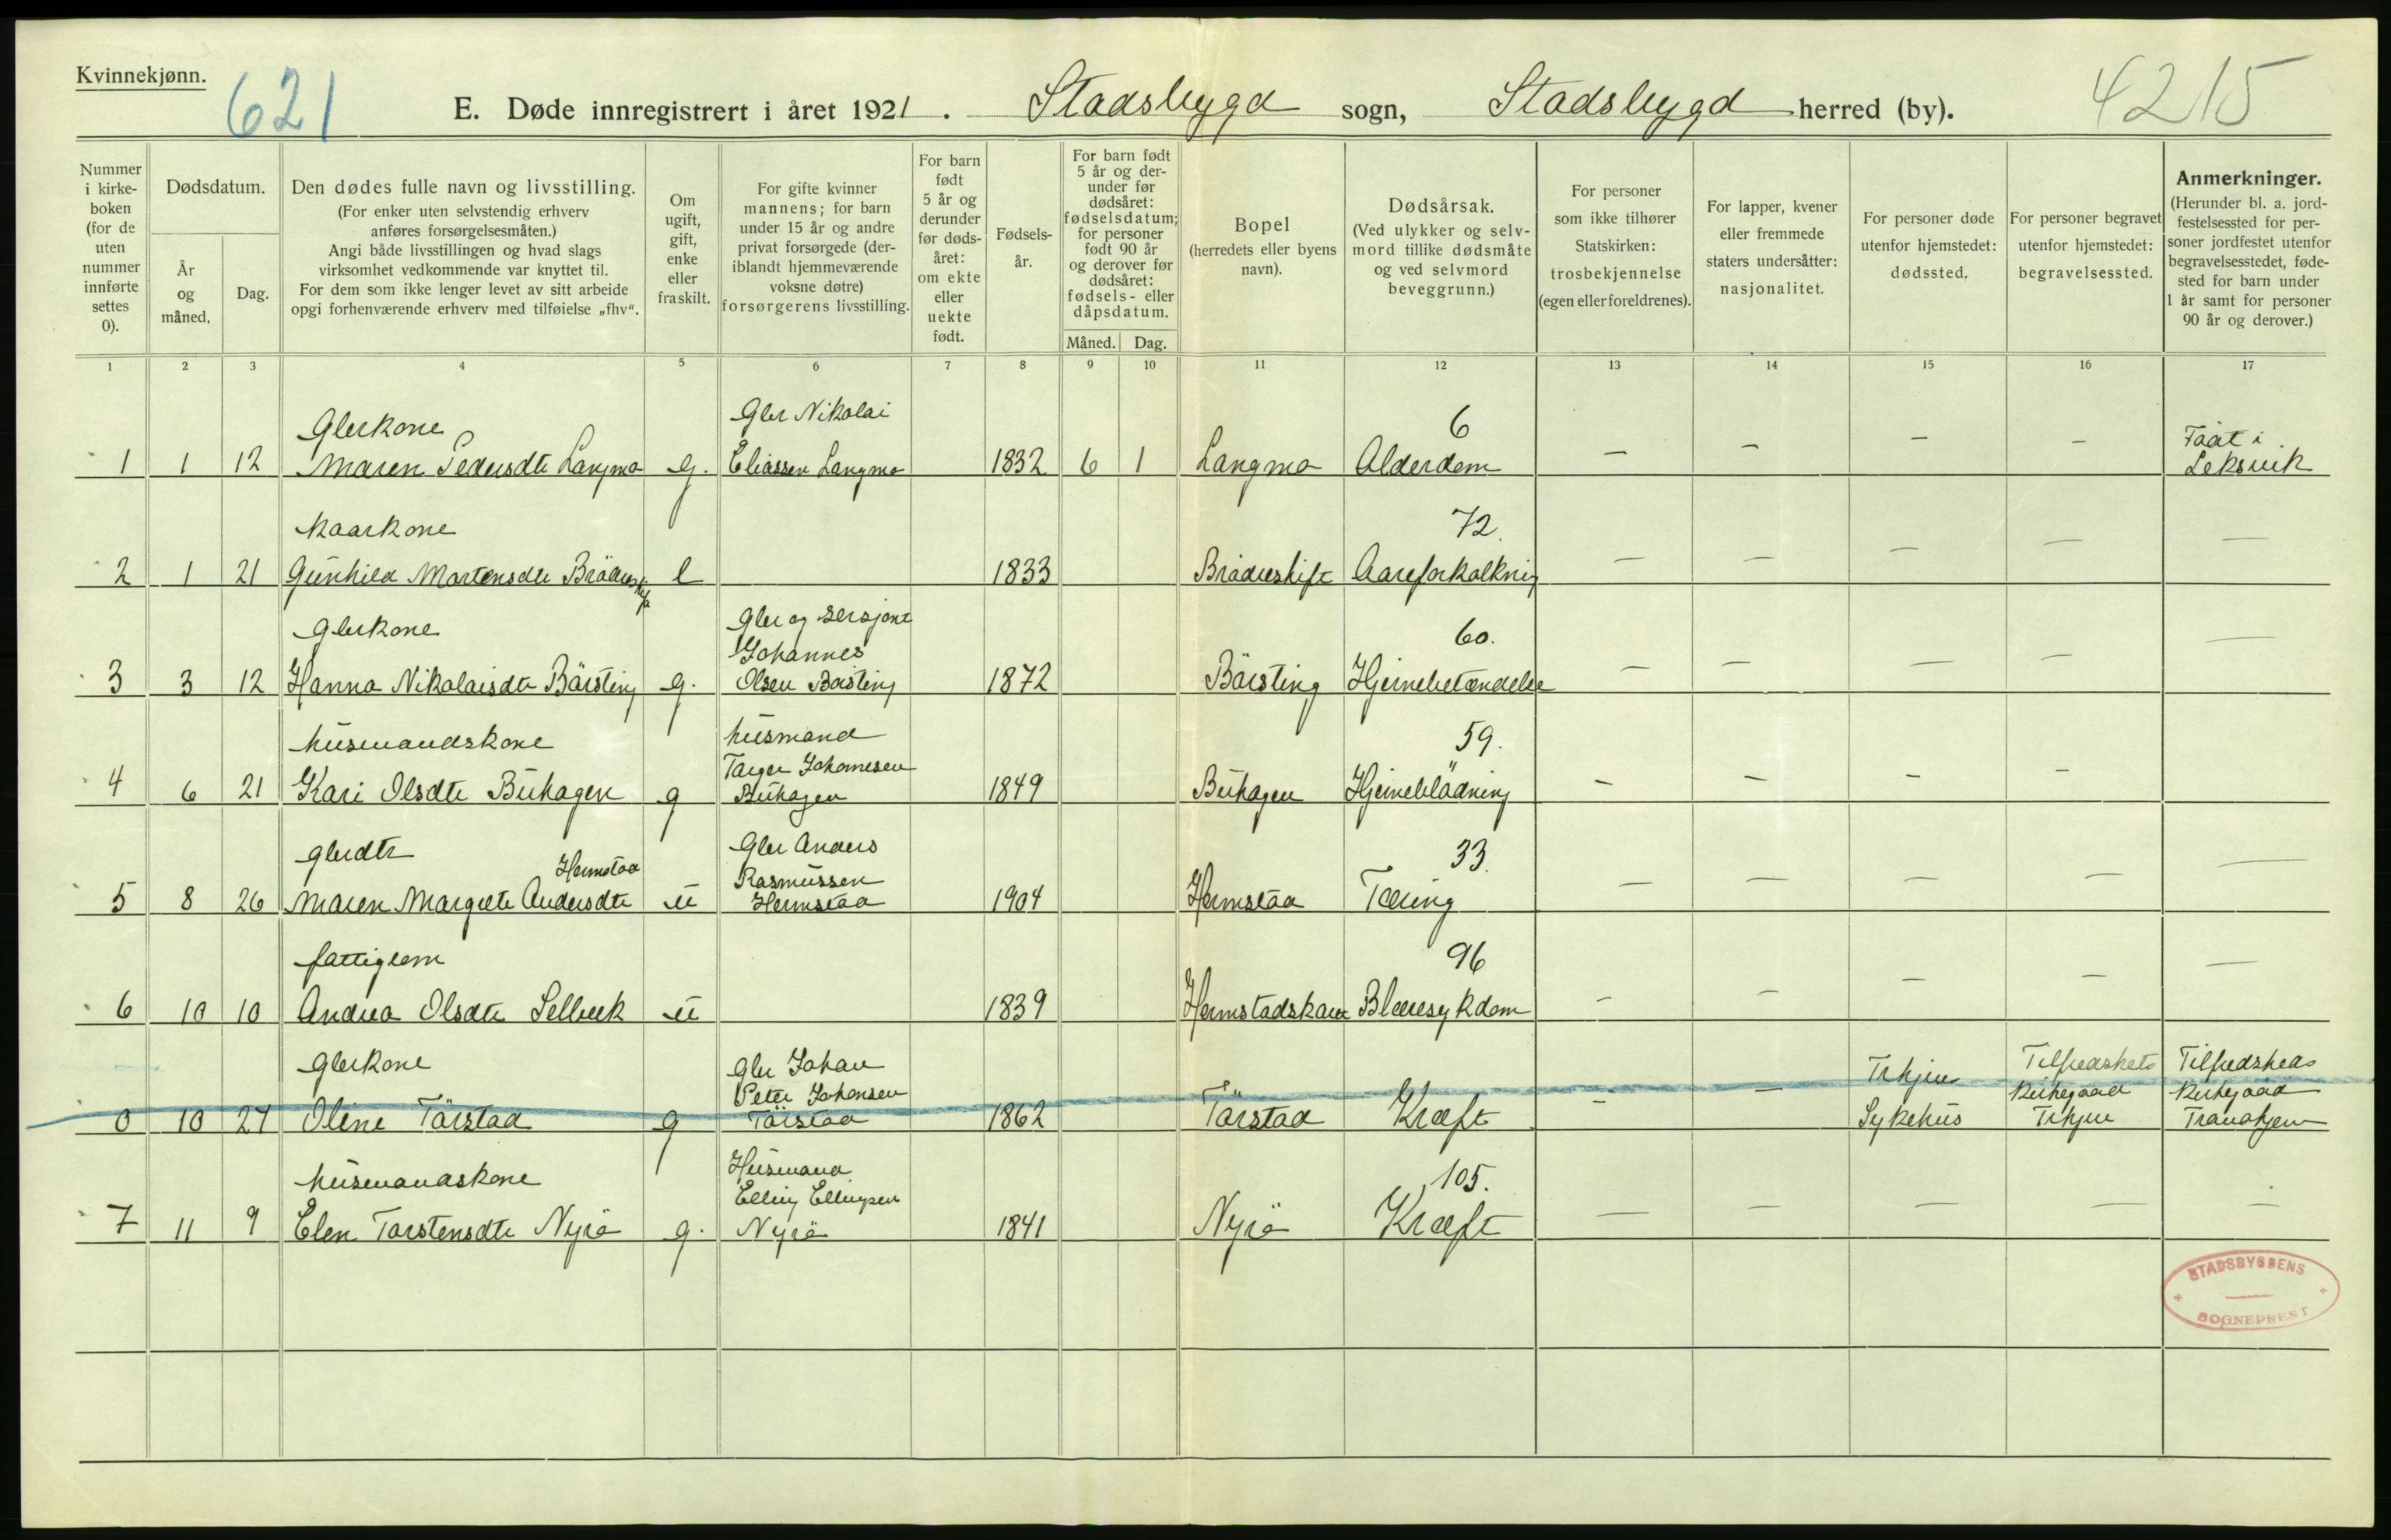 Kvinnekjønn.
621
E. Døde innregistrert i året 1921. Stadsbygd sogn, Stadsbygd herred (by).
4215
Nummer
i kirke-
boken
(for de
uten
nummer
innførte
settes
0).
Dødsdatum.
År
og
måned.
Dag.
Den dødes fulle navn og livsstilling.
(For enker uten selvstendig erhverv
anføres forsørgelsesmåten.)
Angi både livsstillingen og hvad slags
virksomhet vedkommende var knyttet til.
For dem som ikke lenger levet av sitt arbeide
opgi forhenværende erhverv med tilføielse „fhv“.
Om
ugift,
gift,
enke
eller
fraskilt.
For gifte kvinner
mannens; for barn
under 15 år og andre
privat forsørgede (der-
iblandt hjemmeværende
voksne døtre)
forsørgerens livsstilling.
For barn
født
5 år og
derunder
før døds-
året:
om ekte
eller
uekte
født.
Fødsels-
år.
For barn født
5 år og der-
under før
dødsåret:
fødselsdatum;
for personer
født 90 år
og derover før
dødsåret:
fødsels- eller
dåpsdatum.
Måned. Dag.
Bopel
(herredets eller byens
navn).
Dødsårsak.
(Ved ulykker og selv-
mord tillike dødsmåte
og ved selvmord
beveggrunn.)
For personer
som ikke tilhører
Statskirken:
trosbekjennelse
(egen eller foreldrenes).
For lapper, kvener
eller fremmede
staters undersåtter:
nasjonalitet.
For personer døde
utenfor hjemstedet:
dødssted.
For personer begravet
utenfor hjemstedet:
begravelsessted.
Anmerkninger.
(Herunder bl. a. jord-
festelsessted for per-
soner jordfestet utenfor
begravelsesstedet, føde-
sted for barn under
1 år samt for personer
90 år og derover.)
1 2 3 4 5 6 7 8 9 10 11 12 13 14 15 16 17
Glerkone Gbr Nikolai 6 Født i
1 1 12 Maren Pedersdtr Langmo g. Eliassen Langmo 1832 6 1 Langmo Alderdom — — — — Leksvik
Kaarkone 72.
2 1 21 Gunhild Martensdtr Bräderskift e 1833 Bräderskift Aareforkalkning — — — — —
Gbrkone Gbr og sersjant 60.
Johannes
3 3 12 Hanna Nikolaisdtr Bärsting g. Olsen Bärsting 1872 Bärsting Hjernebetændelse — — — — —
husmandskone husmand 59.
Johannesen
4 6 21 Kari Olsdtr Buhagen g Buhagen 1849 Buhagen Hjerneblödning — — — —
gbrdtr Gbr Anders 33.
Hermstad Rasmussen
5 8 26 Maren Margrete Andersdtr u Hermstad 1904 Hermstad Tæring — — — — —
fattiglem 96
6 10 10 Andrea Olsdtr Selbeck u 1839 Blæresykdom — — — — —
Gbrkone Gbr Johan Trhjem Tilfredshets Tilfredsheds
Peter Johansen Kirkegaard Kirkegaard
0 10 27 Oline Tärstad g Tärstad 1862 Tärstad Kræft — — Sykehus Trhjem Trondhjem
husmandskone Husmand 105.
Elling Ellingsen
7 11 9 Elen Tarstensdtr Nyrö g. Nyrö 1841 Nyrö Kræft — — — — —
STADSBYGDENS
SOGNEPREST